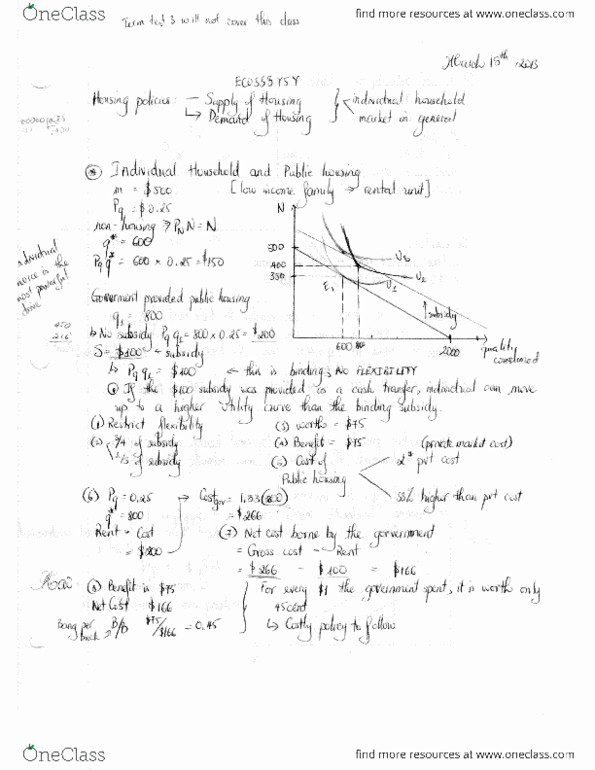 OneClass
find more resources at www.oneclass.com
Term test 3 will not cover this class
March 15th, 2013
Housing policies: → Supply of Housing
↳ Demand of Housing
individual household
market in general
Individual Household and Public housing
m = $500 [low income family → rental unit]
Pq = $0.25
non-housing → PN N = N
q* = 600
Pq q* = 600 x 0.25 = $150
individual
is the
most powerful
drive
N
500
400
350
E1
U0
U2
U1
subsidy
600 800
2000
quality
consumed
Government provided public housing
q1 = 800
↳ No subsidy Pq q1 = 800 x 0.25 = $200
S = $100 → subsidy
↳ Pq q1 = $100 ← this is binding; NO FLEXIBILITY
If the $100 subsidy was provided as a cash transfer, individual can move
up to a higher utility curve than the binding subsidy.
(1) Restrict flexibility
(2) 3/4 of subsidy
of subsidy
(3) worths = $75
Benefit = $75 (private market cost)
Cost of
Public housing
2* pvt cost
33% higher than pvt cost
(6) Pq = 0.25 → Cost gov = 1.33(200)
q* = 800 = $266
Rent = Cost
= $200
(7) Net cost borne by the government
= Gross cost - Rent
= $266 - $100 = $166
Benefit is $75
Net Cost $166
Bang per
buck → B/B $75/$166 = 0.45
For every $1 the government spent, it is worth only
45 cent
↳ Costly policy to follow
OneClass
find more resources at www.oneclass.com